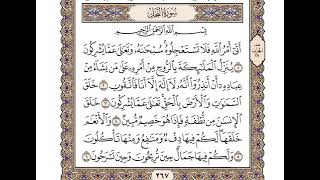 سُورَةُ النَّحْلِ
بِسْمِ اللَّهِ الرَّحْمَٰنِ الرَّحِيمِ
أَتَىٰ أَمْرُ اللَّهِ فَلَا تَسْتَعْجِلُوهُ سُبْحَانَهُ وَتَعَالَىٰ عَمَّا يُشْرِكُونَ
١ يُنَزِّلُ الْمَلَائِكَةَ بِالرُّوحِ مِنْ أَمْرِهِ عَلَىٰ مَن يَشَاءُ مِنْ
عِبَادِهِ أَنْ أَنذِرُوا أَنَّهُ لَا إِلَٰهَ إِلَّا أَنَا فَاتَّقُونِ ٢ خَلَقَ
السَّمَاوَاتِ وَالْأَرْضَ بِالْحَقِّ تَعَالَىٰ عَمَّا يُشْرِكُونَ ٣ خَلَقَ
الْإِنسَانَ مِن نُّطْفَةٍ فَإِذَا هُوَ خَصِيمٌ مُّبِينٌ ٤ وَالْأَنْعَامَ
خَلَقَهَا لَكُمْ فِيهَا دِفْءٌ وَمَنَافِعُ وَمِنْهَا تَأْكُلُونَ
٥ وَلَكُمْ فِيهَا جَمَالٌ حِينَ تُرِيحُونَ وَحِينَ تَسْرَحُونَ ٦
٢٦٧